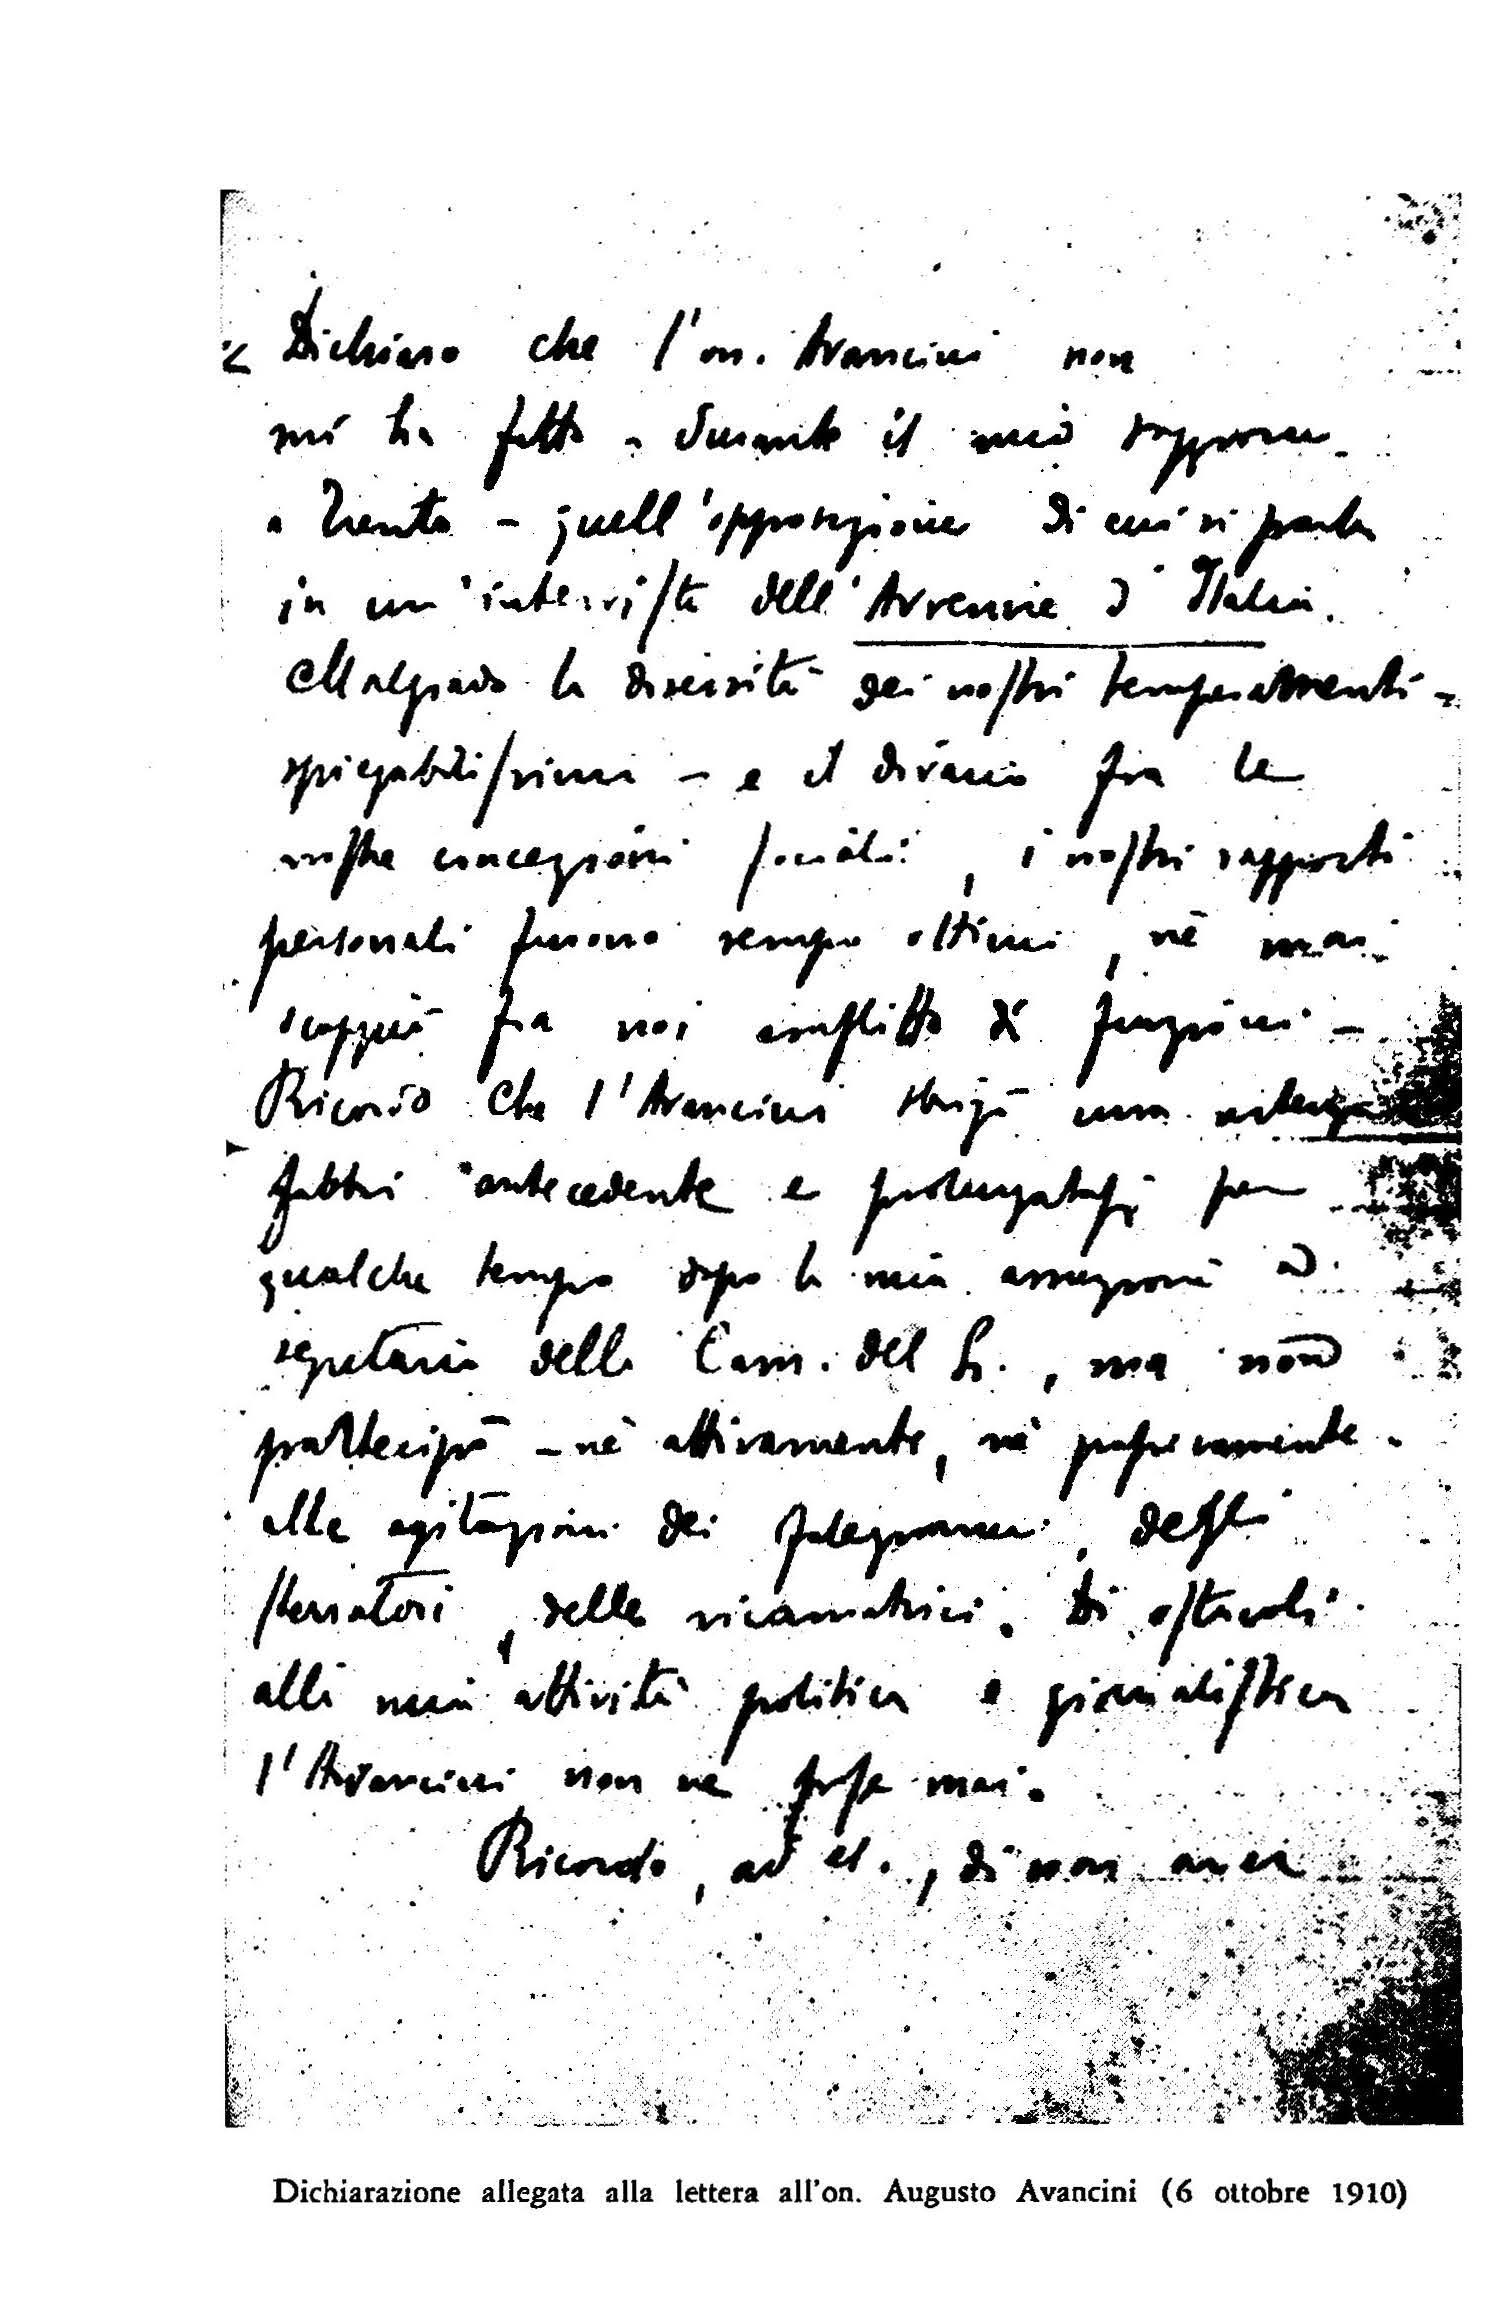 « Dichiaro che l'on. Avancini non
mi ha fatto - durante il mio soggiorno
a Trento - quell'opposizione di cui si parla
in un'intervista dell'Avvenire d'Italia.
Malgrado la diversità dei nostri temperamenti -
spiegabilissima - e il divario fra le
nostre concezioni sociali, i nostri rapporti
personali furono sempre ottimi, nè mai
scoppiò fra noi conflitto di funzioni -
Ricordo che l'Avancini sbrigò una vertenza
fabbri antecedente e prolungatasi per
qualche tempo dopo la mia assunzione a
segretario della Cam. del L., ma non
partecipò - nè attivamente, nè passivamente -
alle agitazioni dei falegnami, degli
sterratori, delle ricamatrici. Di ostacoli
alla mia attività politica e giornalistica
l'Avancini non ne pose mai.
Ricordo, ad es., di non aver
Dichiarazione allegata alla lettera all'on. Augusto Avancini (6 ottobre 1910)